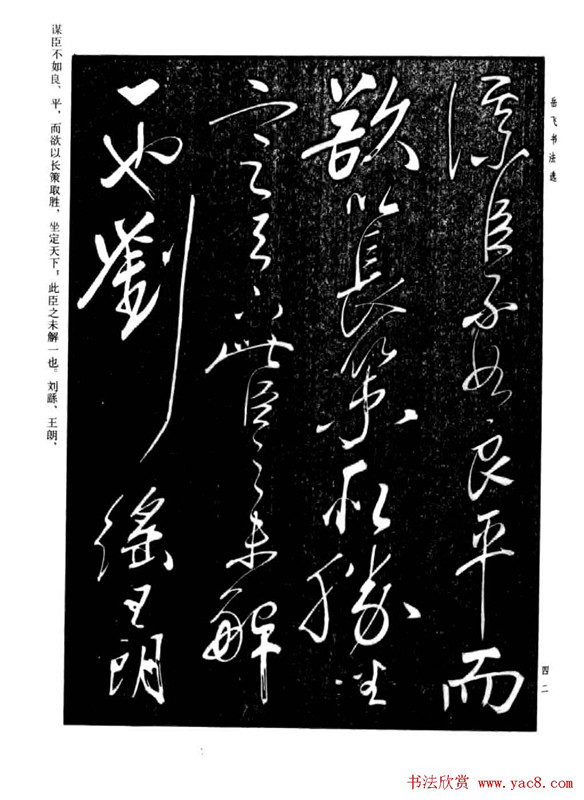 岳飞书法选
謀臣不如良平而
欲以長策取勝坐
定天下此臣之未解
一也劉繇王朗
谋臣不如良、平，而欲以长策取胜，坐定天下，此臣之未解一也。刘繇、王朗、
四二
书法欣赏 www.yac8.com